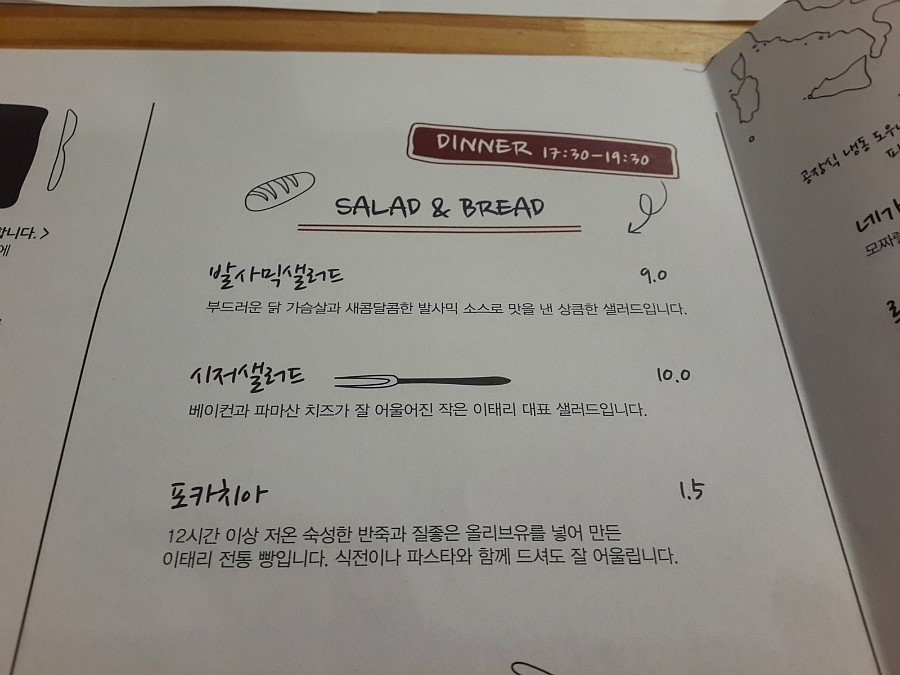 합니다.>
에
DINNER 17:30-19:30
SALAD & BREAD
발사믹샐러드 9.0
부드러운 닭 가슴살과 새콤달콤한 발사믹 소스로 맛을 낸 상큼한 샐러드입니다.
시저샐러드 10.0
베이컨과 파마산 치즈가 잘 어울어진 작은 이태리 대표 샐러드입니다.
포카치아 1.5
12시간 이상 저온 숙성한 반죽과 질좋은 올리브유를 넣어 만든
이태리 전통 빵입니다. 식전이나 파스타와 함께 드셔도 잘 어울립니다.
공장식 냉동 도우
네가
모짜